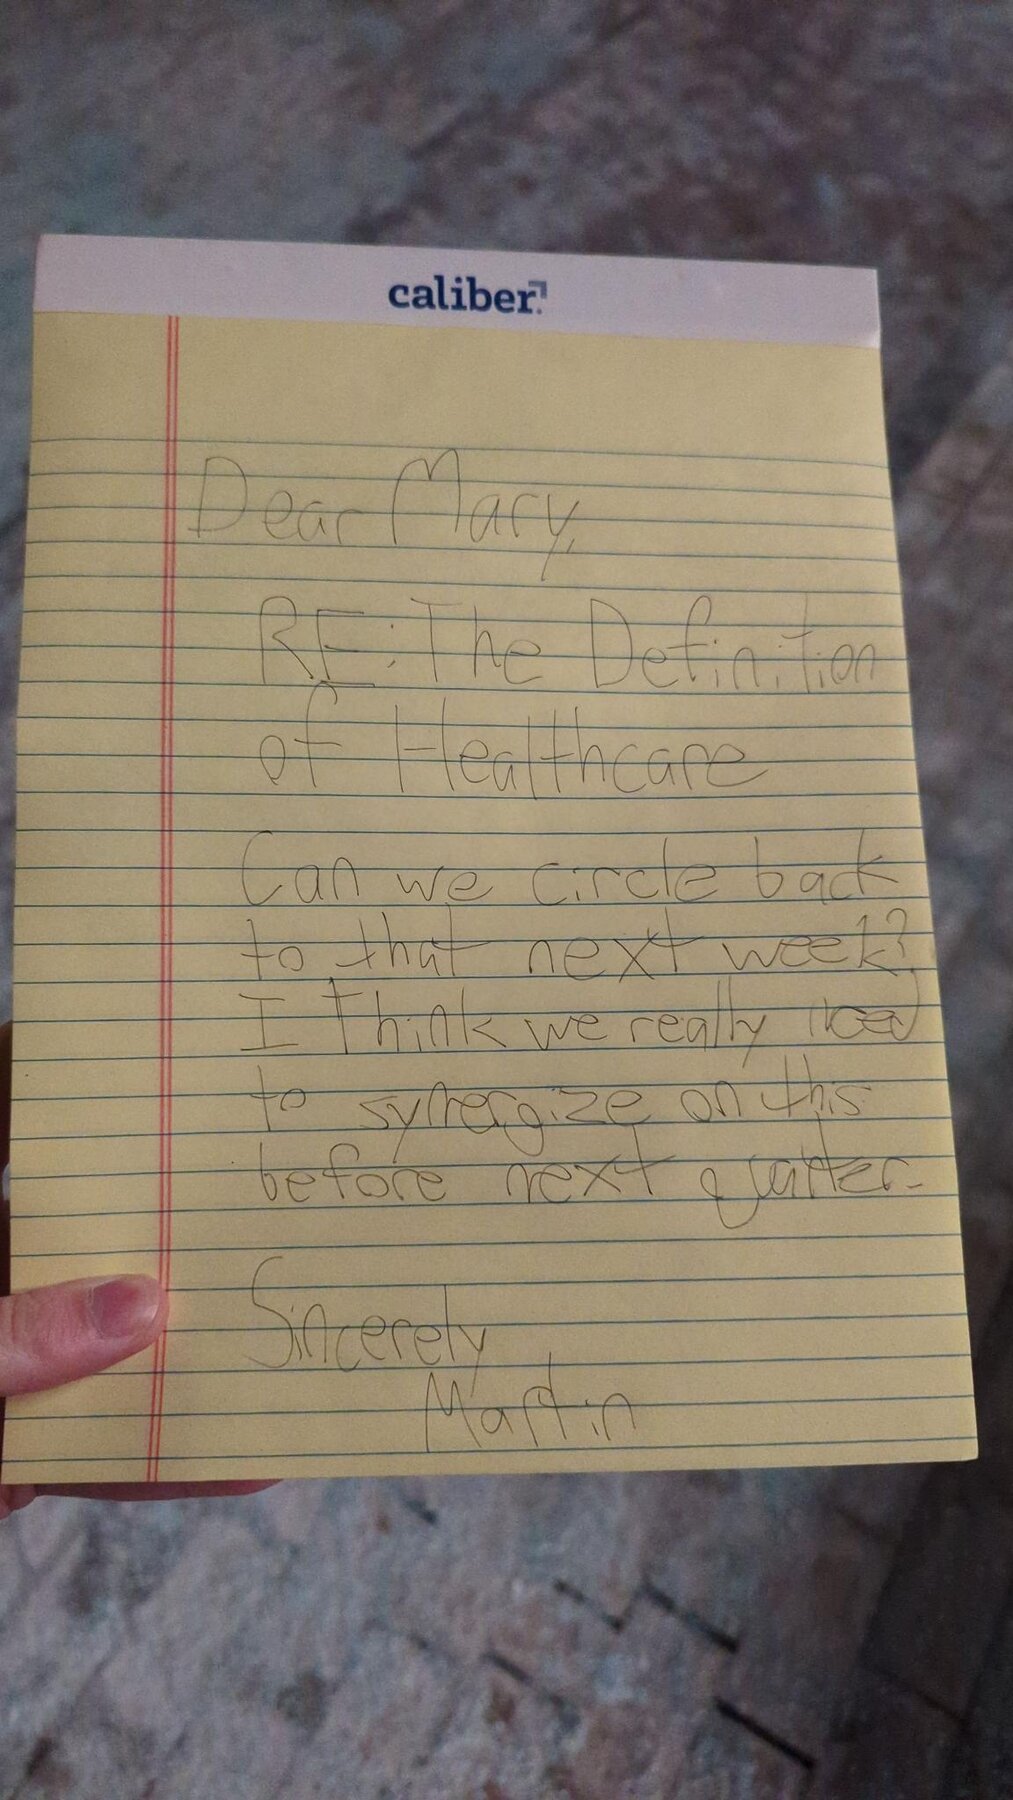 caliber
Dear Mary,
RE: The Definition
of Healthcare
Can we circle back
to that next week?
I think we really need
to synergize on this
before next quarter.
Sincerely
Martin